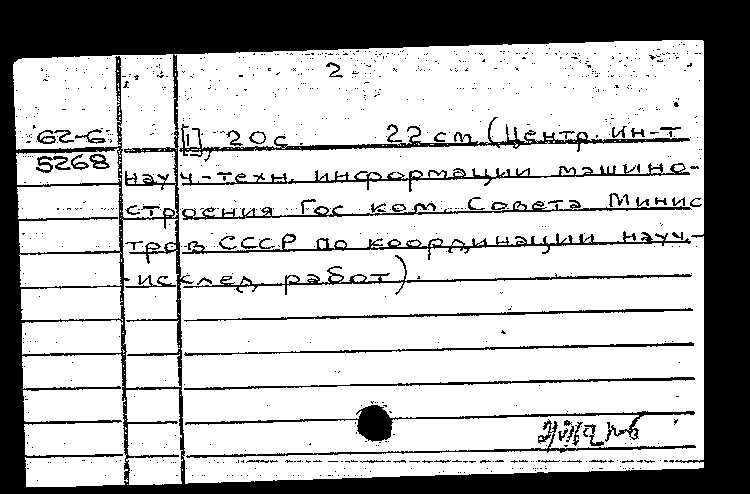 2
62-6
5268
[1], 20 с. 22 см (Центр. ин-т
науч.-техн. информации машино-
строения Гос ком. Совета Минис
тров СССР по координации науч.-
-исслед. работ).